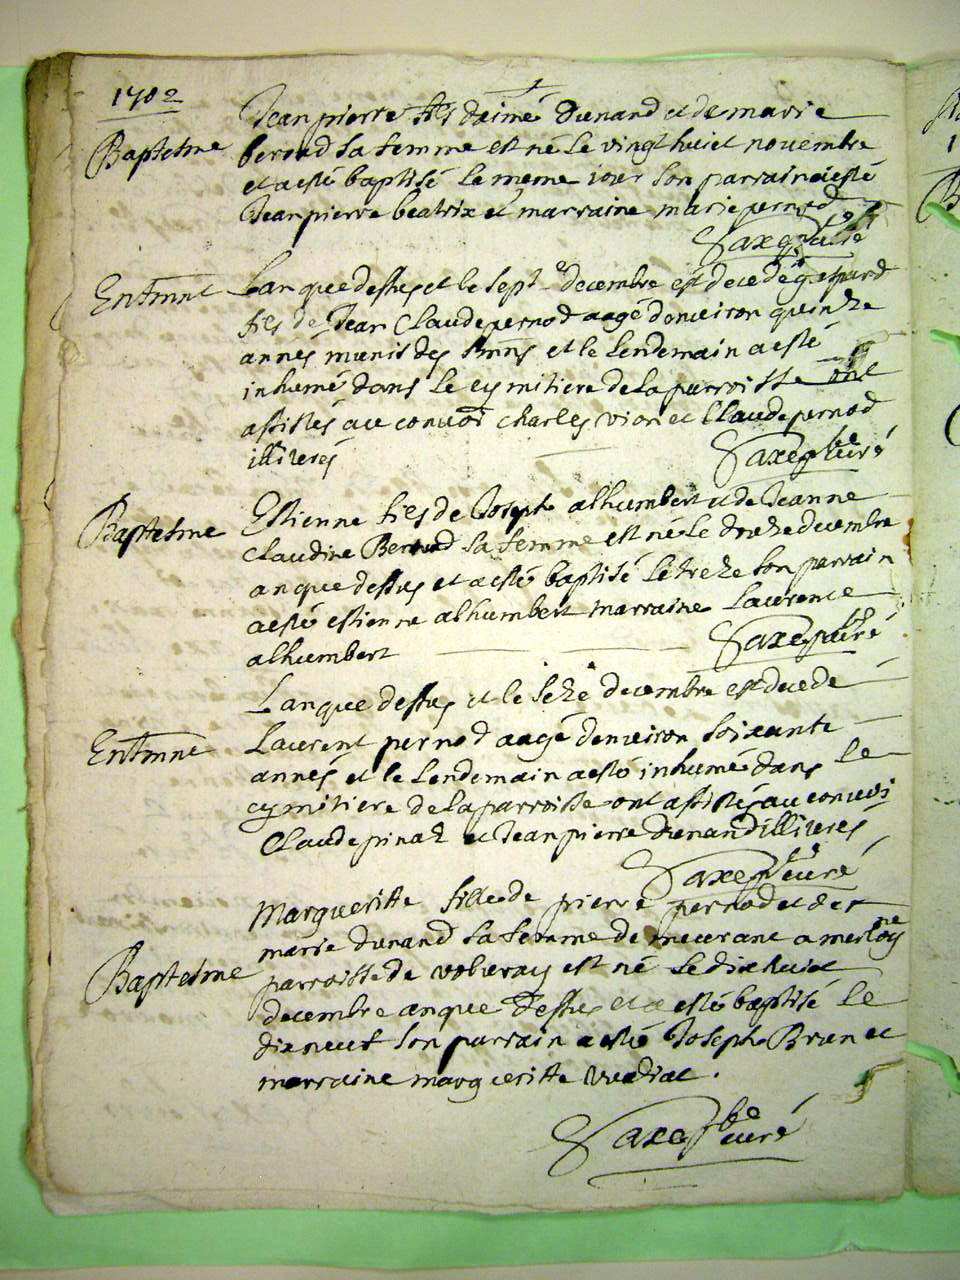 1702
Baptesme
Jean pierre fils daimé dunand et de marie
beroud sa femme est né le vingt huict novembre
et a esté baptisé le meme iour son parrain a esté
Jean pierre beatrix et marraine marie pernod
Saxe curé
Enterment
Lan que dessus et le sept decembre est decedé gaspard
fils de Jean Claude pernod aagé denviron quinze
annes munis des et le lendemain a esté
inhumé dans le cymitiere de la parroisse ont
assistés au convoi charles vion et Claude pernod
illiterés
Saxe curé
Baptesme
Estienne fils de Joseph alhumbert et de Jeanne
Claudine Beroud sa femme est né le douze decembre
an que dessus et a esté baptisé le treze son parrain
a esté estienne alhumbert marraine laurence
alhumbert
Saxe curé
Lan que dessus et le seze decembre est decedé
Entermnt
Laurent pernod aagé denviron soixante
annés et le lendemain a esté inhumé dans le
cymitiere de la parroisse ont assistés au convoi
Claude pinaz et Jean pierre dunand illiterés
Saxe curé
Margueritte fille de pierre pernod et de
marie dunand sa femme demeurant a
Baptesme
parroisse de est né le dixhuict
decembre an que dessus et a esté baptisé le
dixneuf son parrain a esté Joseph Brun et
marraine margueritte
Saxe curé